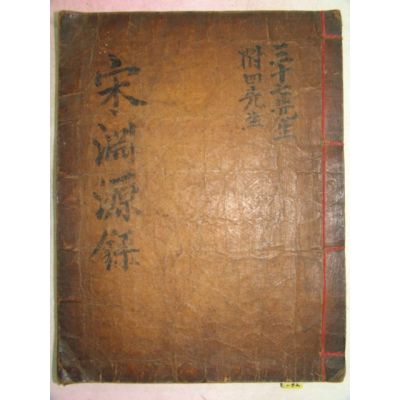 三十先生
附四先生
宋淵源錄